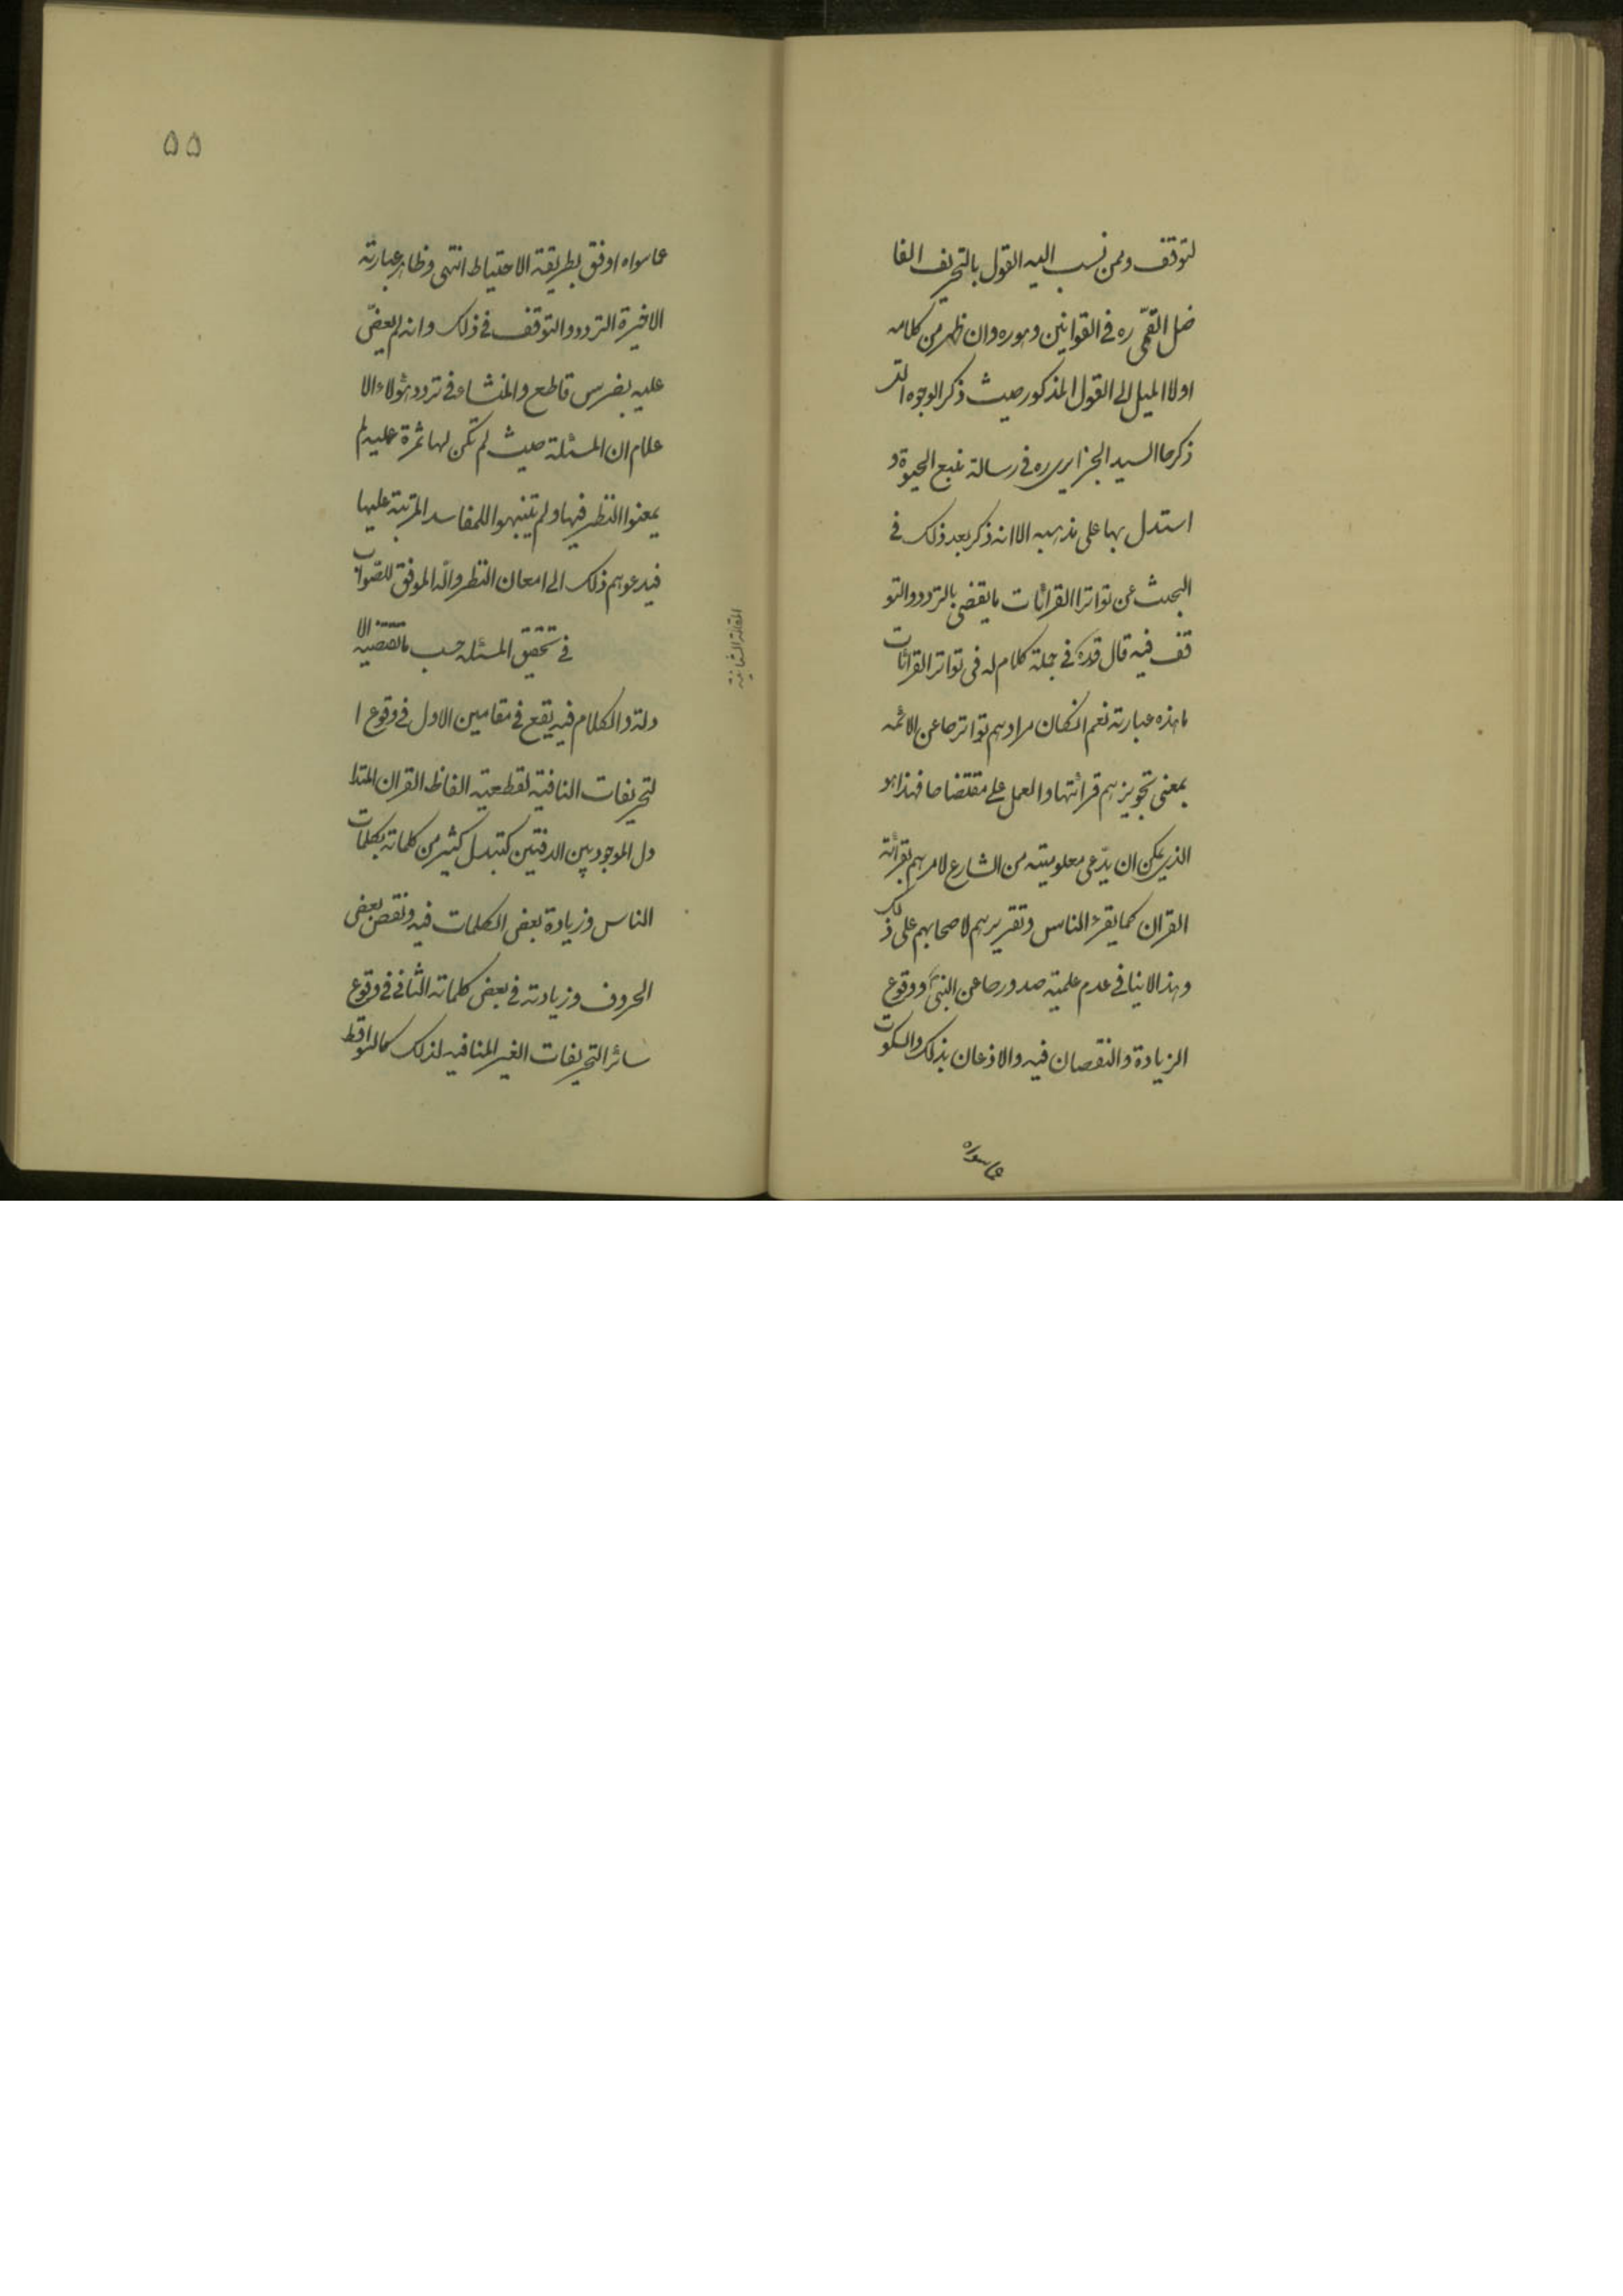 لتوقف وممن نسب اليه القول بالتحريف الفا
ضل القمّى ره فى القوانين وهو ره وان ظهر من كلامه
اولا الميل الى القول المذكور حيث ذكر الوجوه التى
ذكرها السيد الجزايرى ره فى رسالة منبع الحيوة و
استدل بها على مذهبه الا انه ذكر بعد ذلك فى
البحث عن تواتر القرائات ما يقضى بالتردد والتو
قف فيه قال قده فى جملة كلام له فى تواتر القرائات
ما هذه عبارته نعم انكان مرادهم تواترها عن الائمه
بمعنى تجويزهم قرائتها والعمل على مقتضاها فهذا هو
الذى يمكن ان يدّعى معلوميته من الشارع لامرهم بقرائة
القران كما يقرء الناس وتقريرهم لاصحابهم على ذلك
وهذا لا ينافى عدم علمية صدورها عن النبى ووقوع
الزيادة والنقصان فيه والاذعان بذلك والسكوت
عما سواه
۵۵
عما سواه اوفق بطريقة الاحتياط انتهى وظاهر عبارته
الاخيرة التردد والتوقف فى ذلك وانه لم يعضّ
عليه بضرس قاطع والمنشاء فى تردد هؤلاء الا
علام ان المسئلة حيث لم تكن لها ثمرة عمليه لم
يمعنوا النظر فيها ولم يتنبهوا للمفاسد المترتبة عليها
فيدعوهم ذلك الى امعان النظر والله الموفق للصّواب
المقالة الثانية
فى تحقيق المسئله حسب ما تقتضيه الا
دلة والكلام فيه يقع فى مقامين الاول فى وقوع ا
لتحريفات النافية لقطعية الفاظ القران المتدا
ول الموجود بين الدفتين كتبدل كثير من كلماته بكلمات
الناس وزيادة بعض الكلمات فيه ونقص بعض
الحروف وزيادته فى بعض كلماته الثانى فى وقوع
سائر التحريفات الغير المنافيه لذلك